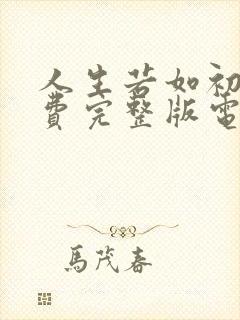 人生若如初
費完整版電
馬茂春